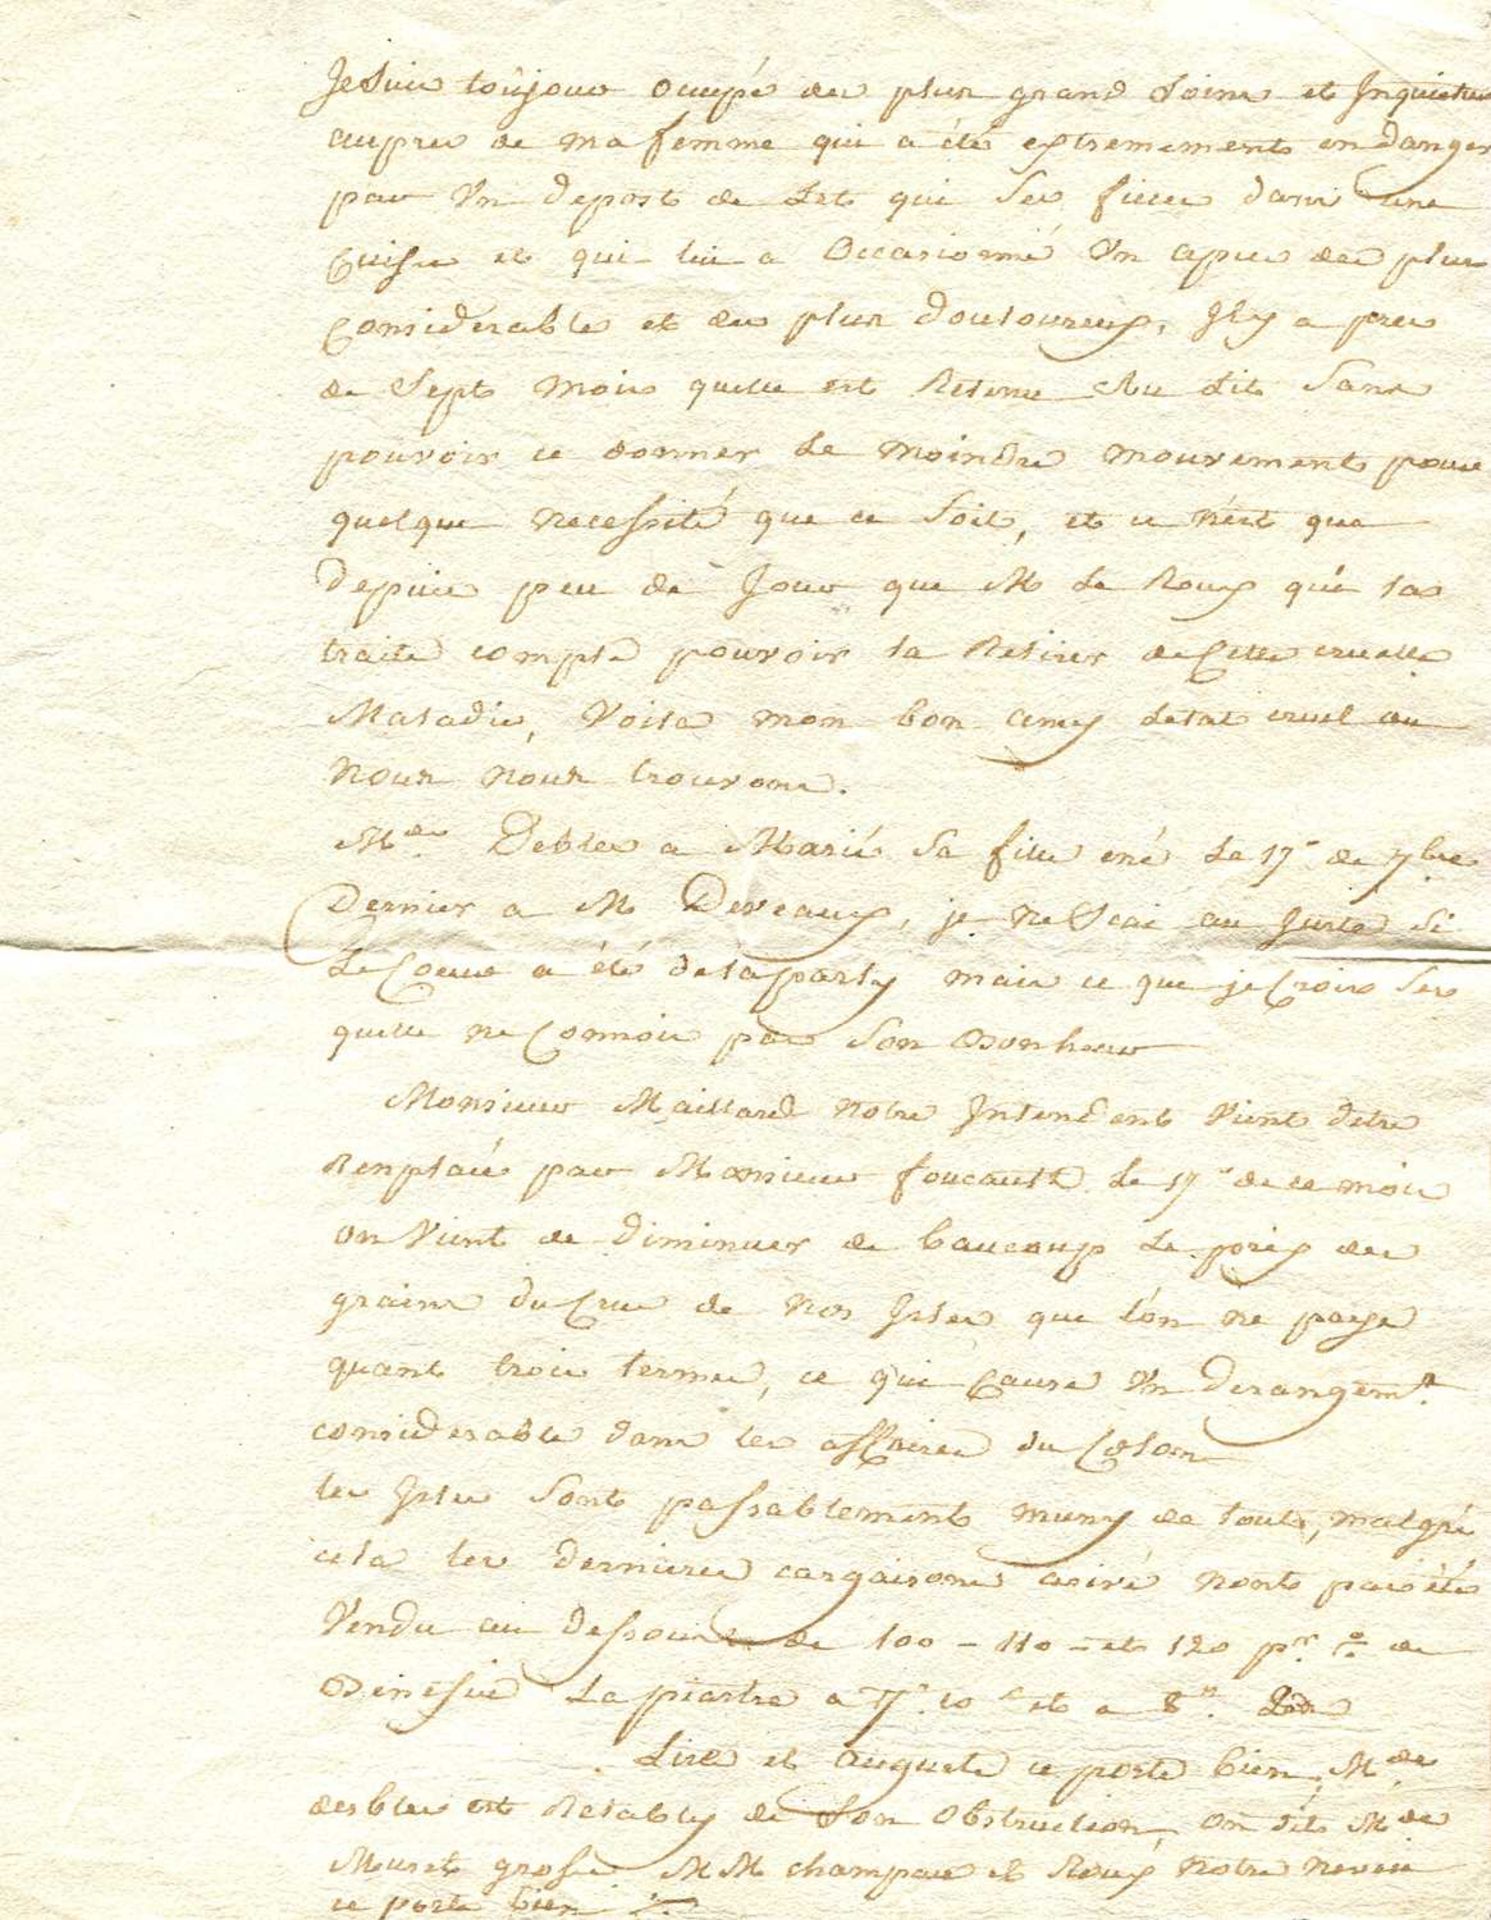 Je Suis toûjour ocupé des plus grand Soins et Inquietu
aupres de ma femme qui a été extremements en danger
par Un depost de Let qui Ses fixée dans une
Cuisse et qui lui a Occasionné Un apsés des plus
Considerables et des plus douloureux, Il y a pres
de Sept mois quelle est Retenu Au Lit Sans
pouvoir ce donner Le moindre mouvements pour
quelque necessité que ce Soit, et ce n'est que
depuis peu de Jour que M Le Roux qui la
traite compte pouvoir la Retirer de Cette cruelle
Maladie, Voila mon bon amy Letat cruel ou
Nous Nous trouvons.
Mde Debles a Marié Sa fille ené Le 17 de 7bre
Dernier a M Deveaux, je ne Scai au Juste Si
Le Coeur a été de la party mais ce que je Crois Ses
quelle ne Connois pas Son Bonheur
Monsieur Maillard Notre Intendent Vient detre
Remplacé par Monsieur foucault Le 17 de ce mois
on Vient de Diminuer de baucoup Le prix des
grains du Cru de Nos Isles que l'on ne paye
quant trois termes, ce qui Cause Un derangemt
considerable dans les affaires du Colon
les Isles Sont passablements muny de toute, malgré
cela les dernieres cargaisons arivé nonts pas été
Vendu au dessous de 100 - 110 - et 120 pr % de
Benefice La piastre a 7 10 s et a 8
Lise et auguste ce porte bien, Mde
desbles est Retably de Son Obstruction, on dit Mde
Muret grosse MM champau et Roux Notre neveu
ce porte bien